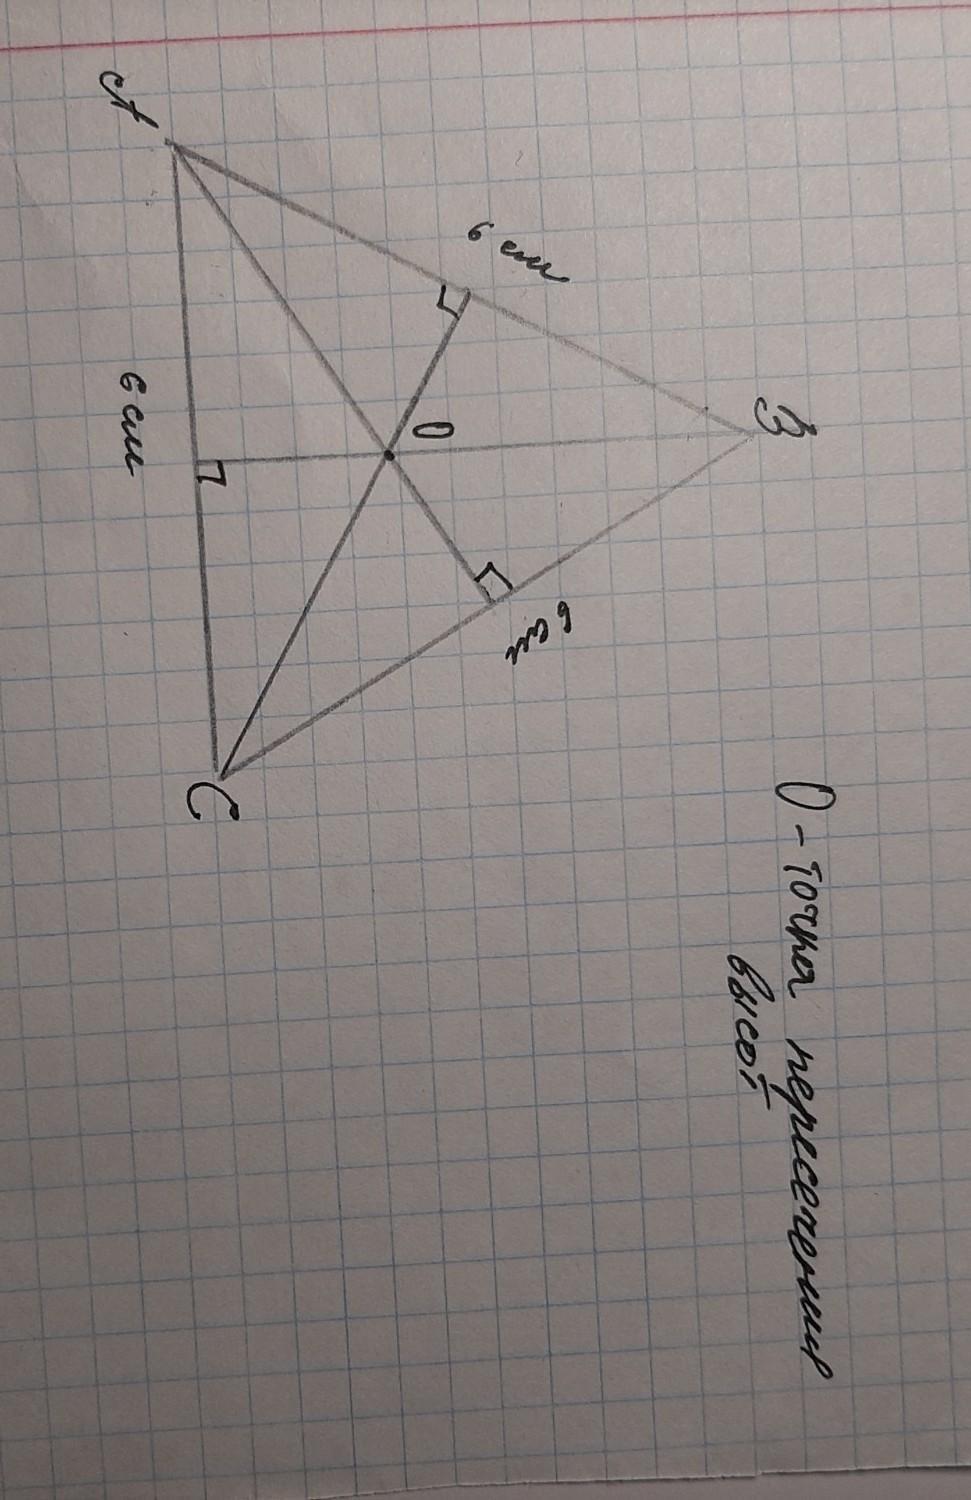 B
6 см
6 см
O
A
6 см
C
O - точка пересечения
высот